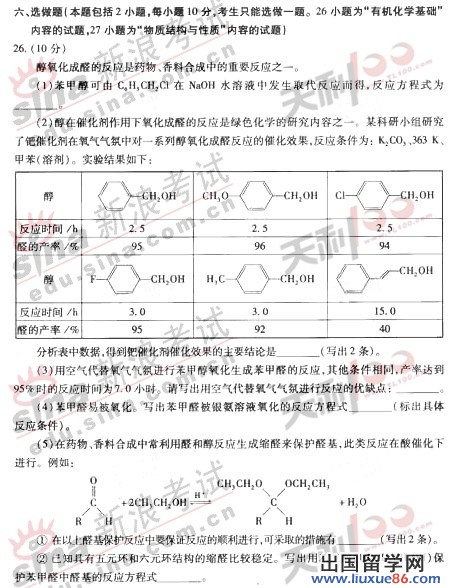 六、选做题(本题包括2小题,每小题10分,考生只能选做一题。26小题为“有机化学基础”
内容的试题,27小题为“物质结构与性质”内容的试题)
26.(10分)
醇氧化成醛的反应是药物、香料合成中的重要反应之一。
(1)苯甲醇可由C₆H₅CH₂Cl在NaOH水溶液中发生取代反应而得,反应方程式为
______。
(2)醇在催化剂作用下氧化成醛的反应是绿色化学的研究内容之一。某科研小组研究
了钯催化剂在氧气气氛中对一系列醇氧化成醛反应的催化效果,反应条件为:K₂CO₃、363 K、
甲苯(溶剂)。实验结果如下:
醇 CH₂OH CH₃O CH₂OH Cl CH₂OH
反应时间/h 2.5 2.5 2.5
醛的产率/% 95 96 94
醇 F CH₂OH H₃C CH₂OH CH₂OH
反应时间/h 3.0 3.0 15.0
醛的产率/% 95 92 40
分析表中数据,得到钯催化剂催化效果的主要结论是______(写出2条)。
(3)用空气代替氧气气氛进行苯甲醇氧化生成苯甲醛的反应,其他条件相同,产率达到
95%时的反应时间为7.0小时。请写出用空气代替氧气气氛进行反应的优缺点:______。
(4)苯甲醛易被氧化。写出苯甲醛被银氨溶液氧化的反应方程式______(标出具体
反应条件)。
(5)在药物、香料合成中常利用醛和醇反应生成缩醛来保护醛基,此类反应在酸催化下
进行。例如:
O CH₃CH₂O OCH₂CH₃
C +2CH₃CH₂OH H⁺ C +H₂O
R H R H
① 在以上醛基保护反应中要保证反应的顺利进行,可采取的措施有______(写出2条)。
② 已知具有五元环和六元环结构的缩醛比较稳定。写出用
)保
护苯甲醛中醛基的反应方程式______。
新浪考试
sina
edu.sina.com.cn
天利100
出国留学网
www.liuxue86.com